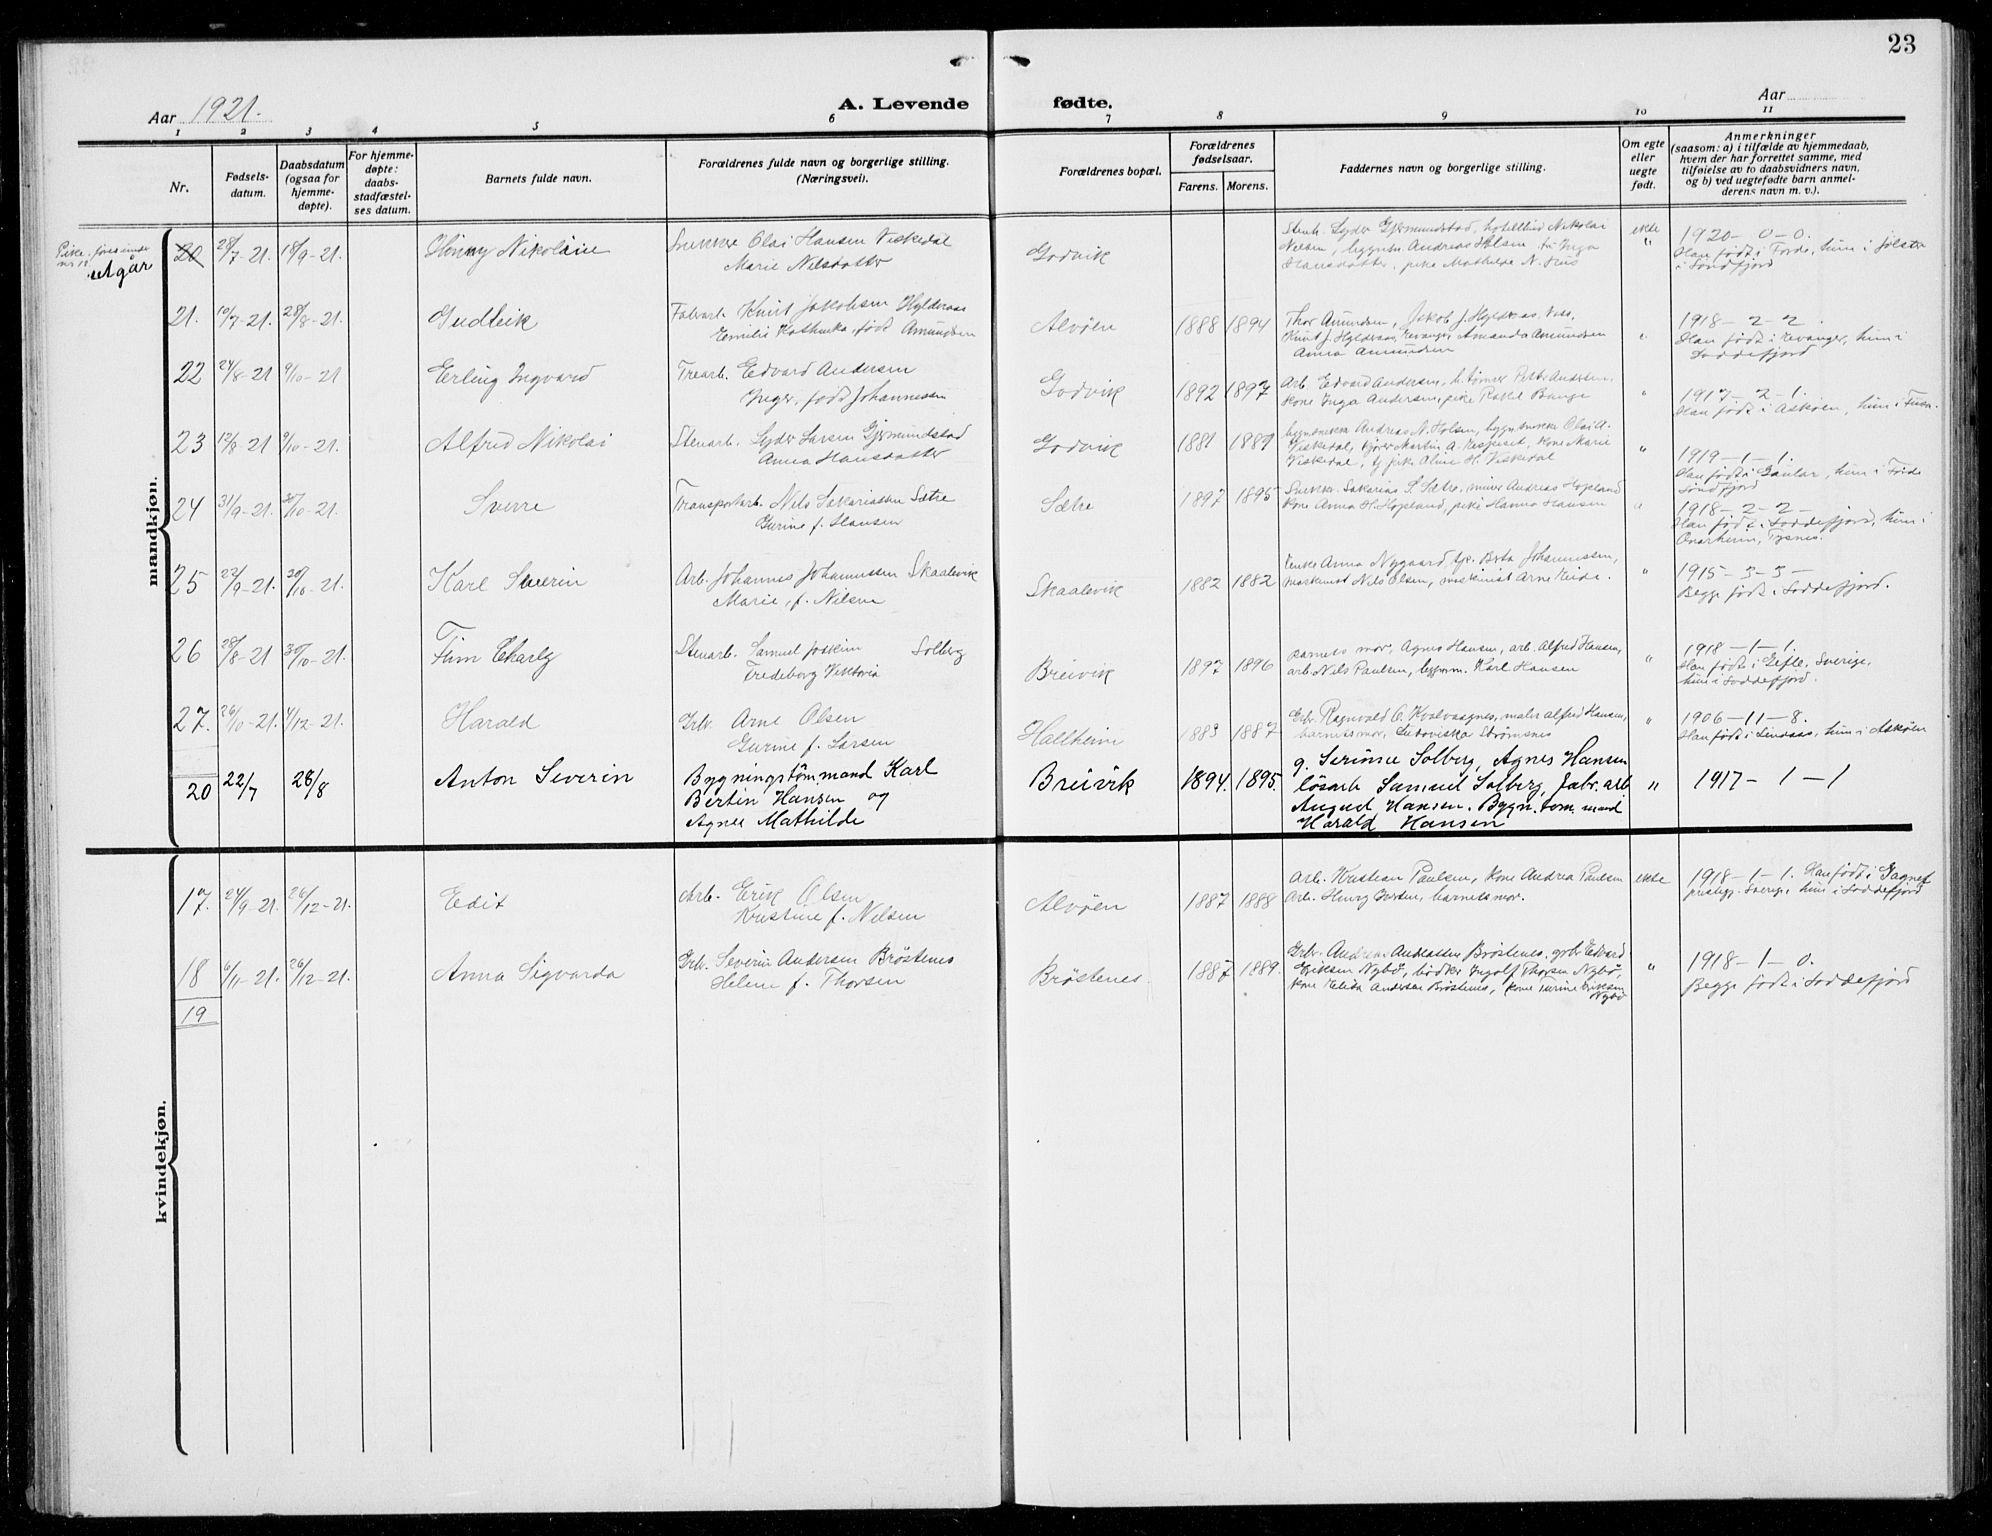 23
Aar 1921.
A. Levende fødte.
Aar
1 2 3 4 5 6 7 8 9 10 11
Nr.
Fødsels-
datum.
Daabsdatum
(ogsaa for
hjemme-
døpte).
For hjemme-
døpte:
daabs-
stadfæstel-
ses datum.
Barnets fulde navn.
Forældrenes fulde navn og borgerlige stilling.
(Næringsvei).
Forældrenes bopæl.
Forældrenes
fødselsaar.
Farens. Morens.
Faddernes navn og borgerlige stilling.
Om egte
eller
uegte
født.
Anmerkninger
(saasom: a) i tilfælde av hjemmedaab,
hvem der har forrettet samme, med
tilføielse av to daabsvidners navn,
og b) ved uegtefødte barn anmel-
derens navn m. v.).
mandkjøn.
Pike, føres under
nr 19
utgår
20 28/7-21. 18/9-21. Hinny Nikolaie
Snekker Olai Hansen Viskedal
Marie Nilsdatter
Godvik
Stenh. Syder Gjermundstad, hotelleier Nikolai
Nilsen, bygnsn. Andreas Holsen, fr. Inga
Hansdatter, pike Mathilde N. Hus
ekte
"
1920-0-0.
Han født i Førde, hun i Jølster
i Søndfjord
21. 10/7-21. 28/8-21. Gudleik
Fabarb. Knut Jakobsen Hylderaas
Emilie Kathinka, født Amundsen
Alvøen
1888 1894
Thor Amundsen, Jakob J. Hylderaas, Voss,
Knut J. Hylderaas, Evanger, Amanda Amundsen
Anna Amundsen
"
1918-2-2.
Han født i Evanger, hun i
Loddefjord
22 24/8-21 9/10-21 Erling Ingvard
Trearb. Edvard Andersen
Inger, født Johannessen
Godvik
1892 1897
Arb. Edvard Andersen, h. tømrer Peter Andersen,
kone Inga Andersen, pike Rakel Bauge
"
1917-2-1.
Han født i Askøen, hun i Fusa.
23 12/8-21 9/10-21. Alfred Nikolai
Stenarb. Syder Larsen Gjermundstad
Anna Hansdatter
Godvik
1881 1887
bygnsnekker Andreas N. Holsen, bygn.snekker Olai A.
Viskedal, kjører Martin A. Espeset, kone Marie
Viskedal, tj. pike Aline H. Viskedal
"
1919-1-1.
Han født i Gaular, hun i Førde
Søndfjord
24 31/9-21. 30/10-21. Sverre
Transportarb. Nils Sakariassen Sætre
Gurine f. Hansen
Sætre
1897 1895
Snekker Sakarias S. Sætre, murer Andreas Hopeland
kone Anna H. Hopeland, pike Hanna Hansen
"
1918-2-2-
Han født i Loddefjord, hun i
Onarheim, Tysnes.
25 22/9-21. 30/10-21. Karl Severin
Arb. Johannes Johannessen Skaalevik
Marie, f. Nilsen
Skaalevik
1882 1882
Enke Anna Nygaard, tjp. Berta Johannessen,
maskinist Nils Olsen, maskinist Arne Eide.
"
1915-3-3-
Begge født i Loddefjord.
26 28/8-21 30/10-21. Finn Charly
Stenarb. Samuel Joakim Solberg
Fredeborg Viktoria
Breivik
1897 1896
barnets mor, Agnes Hansen, arb. Alfred Hansen,
arb. Nils Paulsen, bygnm. Karl Hansen
"
1918-1-1.
Han født i Gefle, Sverige,
hun i Loddefjord.
27. 26/10-21. 4/12-21. Harald
Grb. Arne Olsen
Gurine f. Larsen
Hallheim
1883 1887
Grb. Ragnvald O. Kvalvaagnes, maler Alfred Hansen,
barnets mor, Ludoviska Strømsnes
"
1906-11-8.
Han født i Lindaas, hun i Askøen
20 22/7 28/8 Anton Severin
Bygningstömmand Karl
Bertin Hansen og
Agnes Mathilde
Breivik
1894. 1895.
g. Serinne Solberg, Agnes Hansen
lösarb Samuel Solberg, Fabr. arb
August Hansen. Bygn. tøm. mand
Harald Hansen
"
1917-1-1
kvindekjøn.
17. 24/9-21. 26/12-21. Edit
Arb. Erik Olsen
Kristine f. Nilsen
Alvøen
1887 1888
Arb. Kristian Paulsen, kone Andrea Paulsen
Arb. Henry Iversen, barnets mor.
ekte
1918-1-1. Han født i Gagnef
prestegj. Sverige, hun i Loddefjord
18 6/11-21. 26/12-21. Anna Sigvarda
Grb. Severin Andersen Bröstenes
Helene f. Thorsen
Bröstenes.
1887 1889.
Grb. Andreas Andreassen Bröstenes, grbr Edvard
Eriksen Nybö, bödker Ingolf Thorsen Nybö,
kone Elida Andersen Bröstenes, kone Turine Eriksen
Nybö
"
1918-1-0.
Begge født i Loddefjord
19